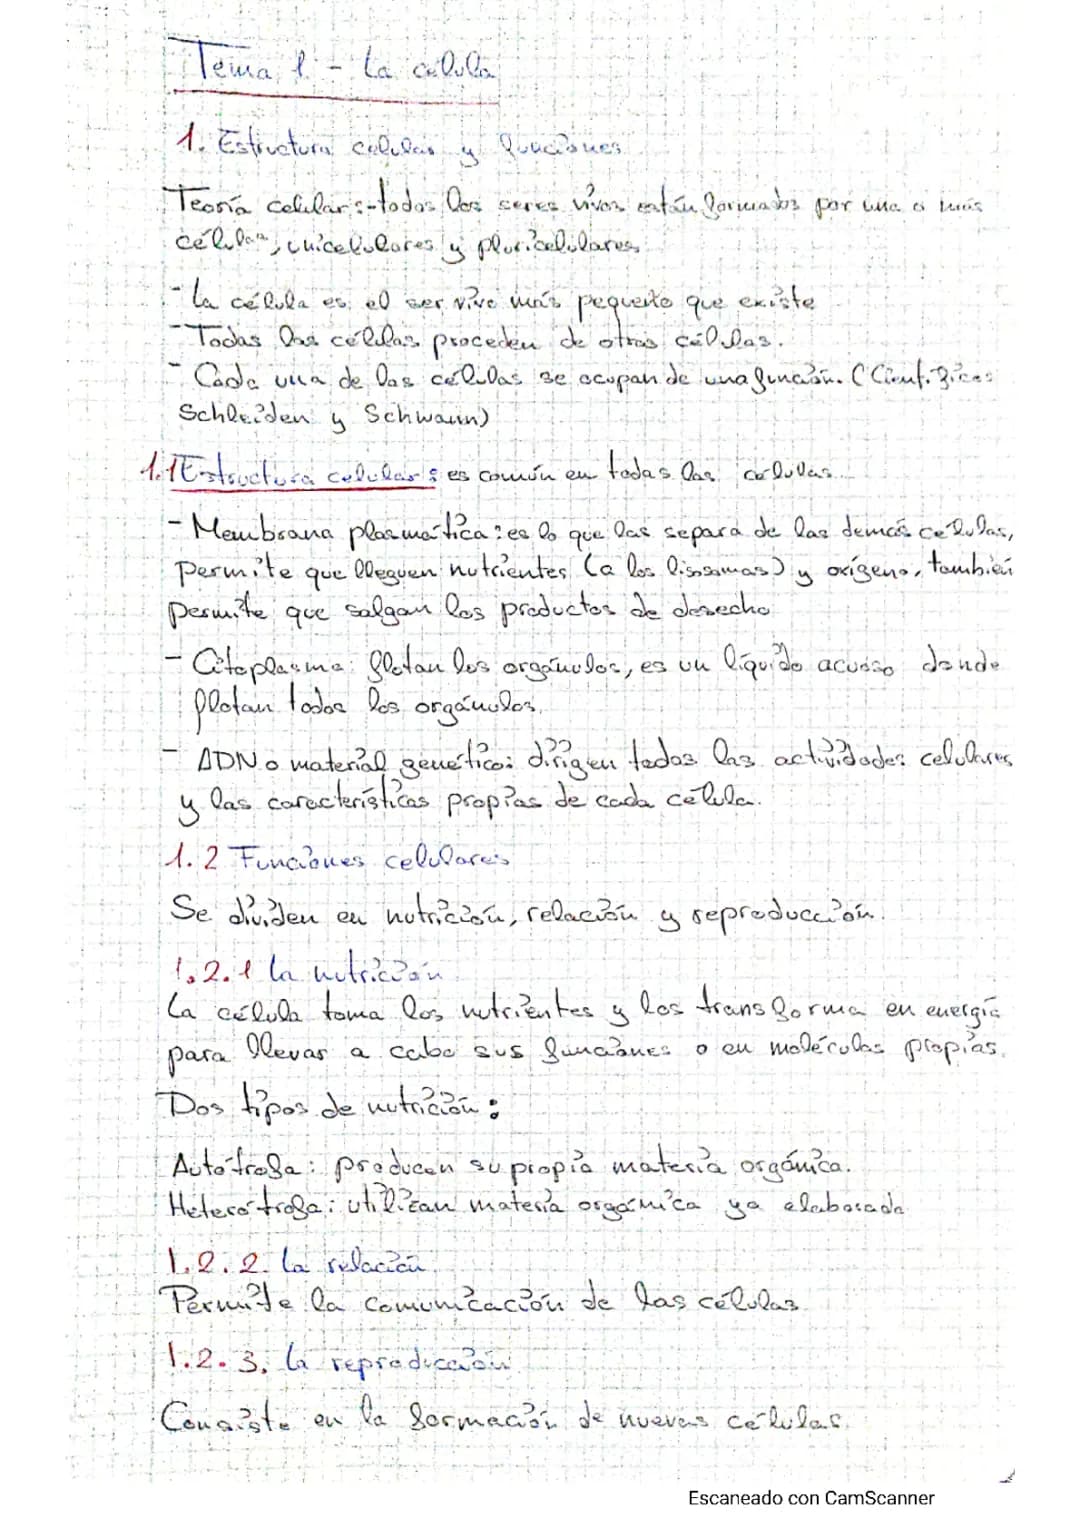 Tema 1.- La célula
1. Estructura celular y funciones
Teoría celular:-todos los seres vivos están formados por una o más
células, unicelulares y pluricelulares.
- La célula es el ser vivo más pequeño que existe
- Todas las células proceden de otras células.
- Cada una de las células se ocupan de una función. (Científicos
Schleiden y Schwann)
1.1 Estructura celular: es común en todas las células.
- Membrana plasmática: es lo que las separa de las demás células,
permite que lleguen nutrientes (a los lisosomas) y oxígeno, también
permite que salgan los productos de desecho
- Citoplasma: flotan los orgánulos, es un líquido acuoso donde
flotan todos los orgánulos.
- ADN o material genético: dirigen todas las actividades celulares
y las características propias de cada célula.
1.2 Funciones celulares
Se dividen en nutrición, relación y reproducción.
1.2.1 La nutrición
La célula toma los nutrientes y los transforma en energía
para llevar a cabo sus funciones o en moléculas propias.
Dos tipos de nutrición:
Autótrofa: producen su propia materia orgánica.
Heterótrofa: utilizan materia orgánica ya elaborada
1.2.2. La relación.
Permite la comunicación de las células
1.2.3. La reproducción
Consiste en la formación de nuevas células.
Escaneado con CamScanner